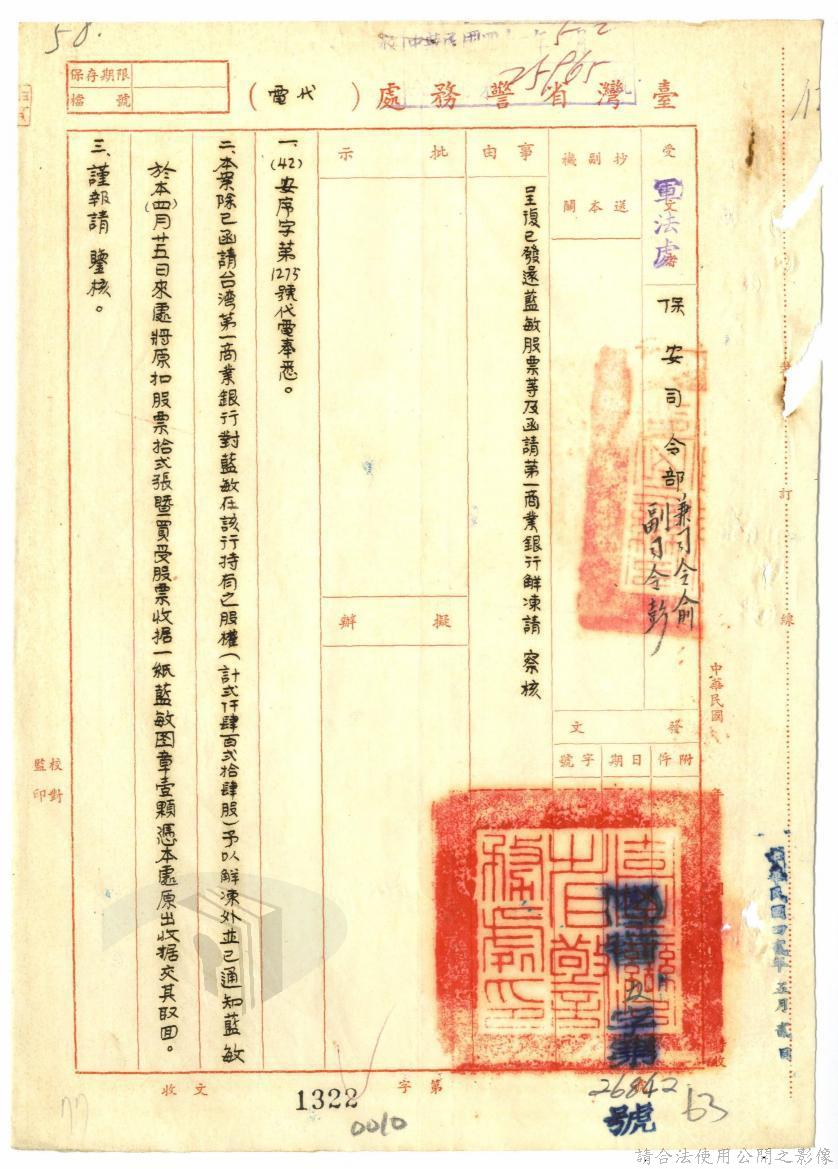 58.
25965
臺灣省警務處（代電）
保存期限
檔號
受文者
軍法處
保安司令部兼司令俞
副司令彭
抄送副本機關
事由
呈復已發還藍敏股票等及函請第一商業銀行解凍請 察核
批示
擬辦
發文
附件
日期
字號
中華民國
一、(42)安序字第1275號代電奉悉。
二、本案除已函請台湾第一商業銀行對藍敏在該行持有之股權（計弍仟肆百弍拾肆股）予以解凍外並已通知藍敏
於本(四)月廿五日來處將原扣股票拾弍張暨買受股票收据一紙藍敏图章壹顆憑本處原出收据交其取回。
三、謹報請 鑒核。
字第
26842
號
63
中華民國四貳年五月貳日
訂
線
校對
監印
收文
字第
1322
0010
77
請合法使用公開之影像